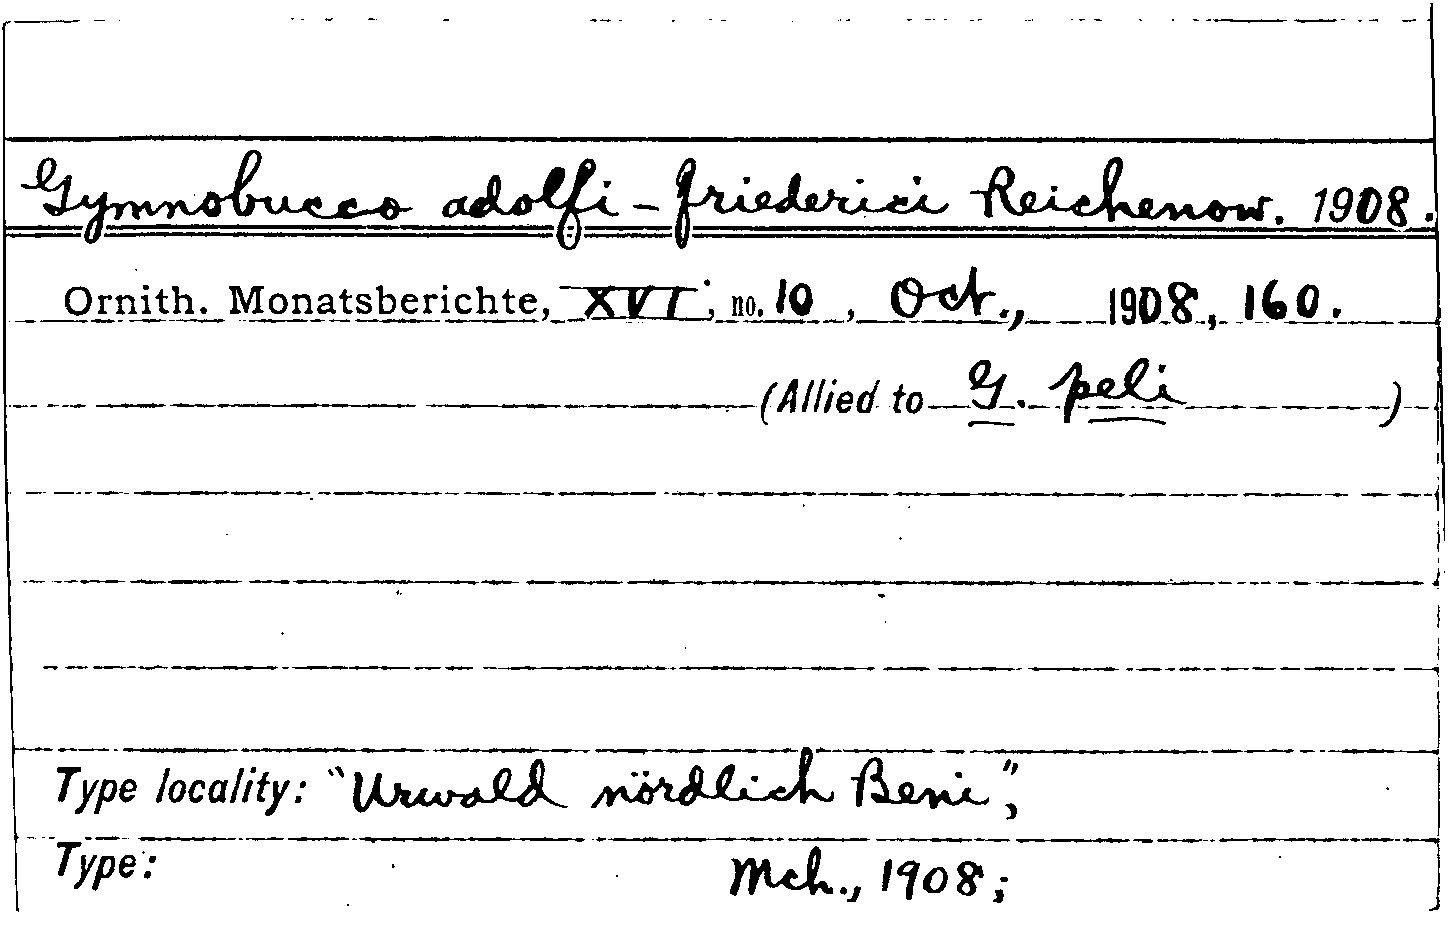 Gymnobucco adolfi-friederici Reichenow. 1908.
Ornith. Monatsberichte, XVI; no. 10, Oct., 1908, 160.
(Allied to G. peli )
Type locality: "Urwald nördlich Beni",
Type: Mch., 1908;